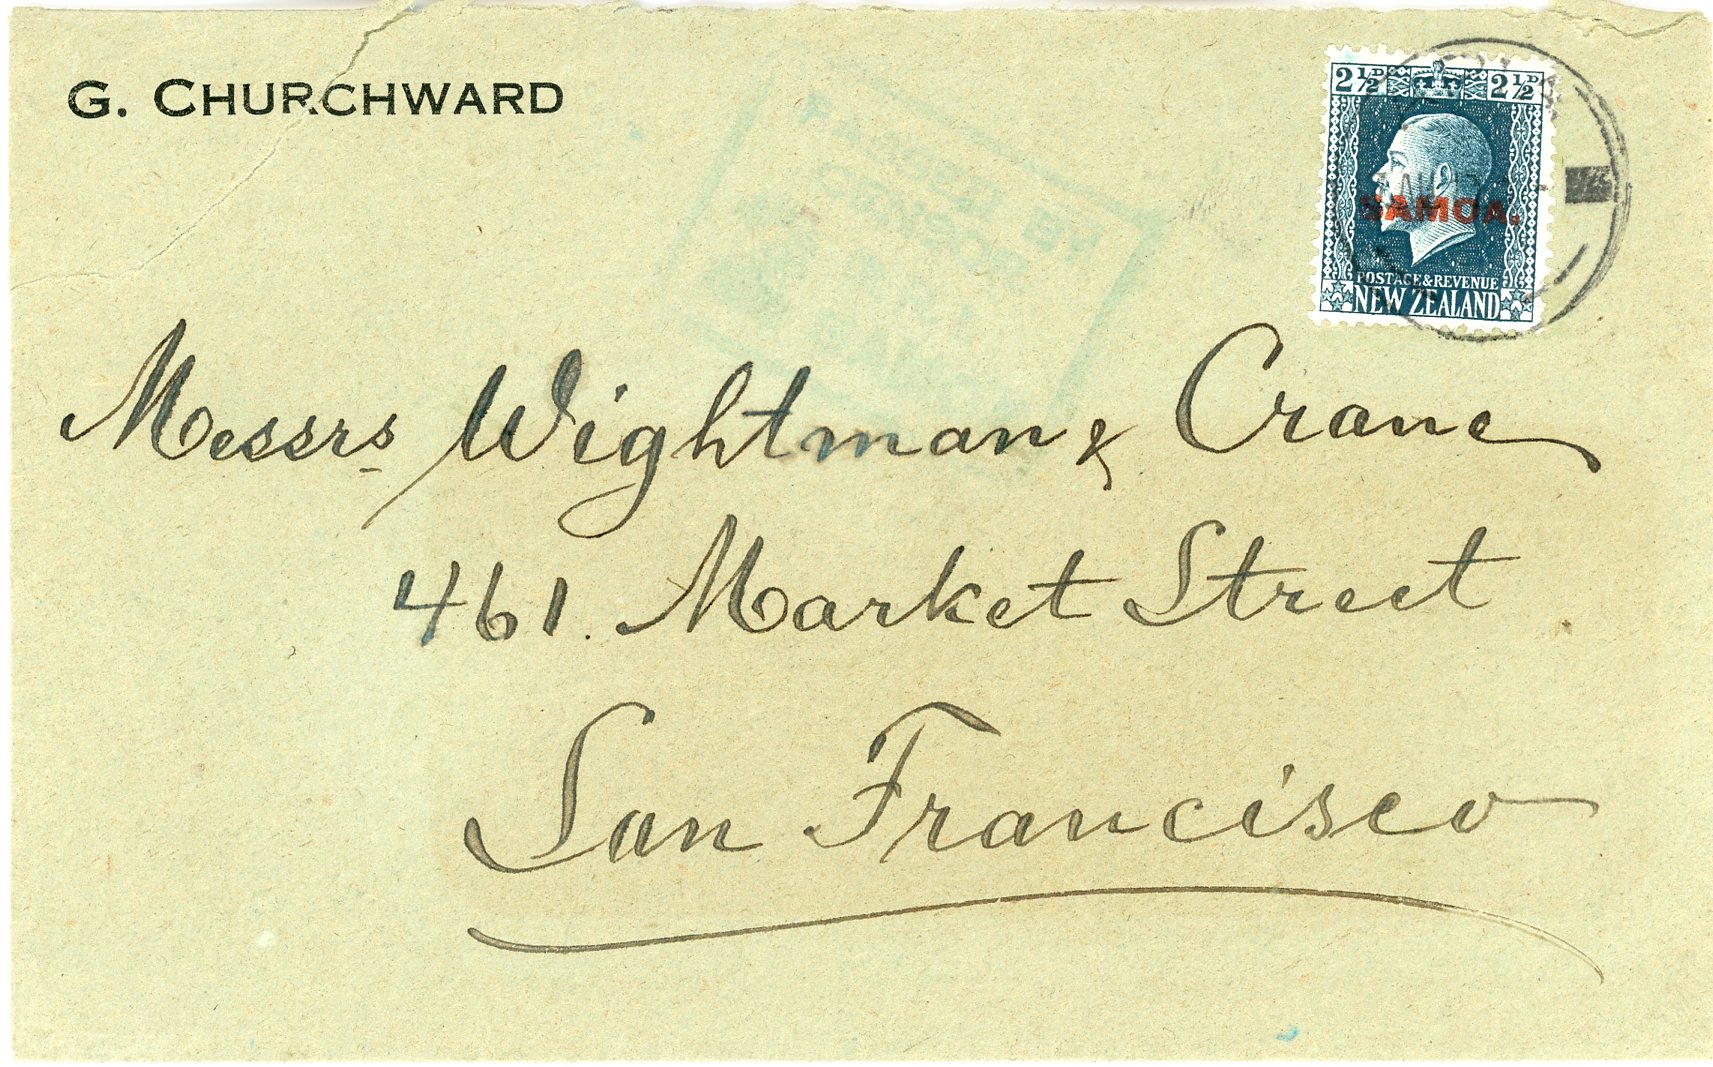 G. CHURCHWARD
2½D 2½D
SAMOA.
POSTAGE & REVENUE
NEW ZEALAND
Messrs Wightman & Crane
461. Market Street
San Francisco